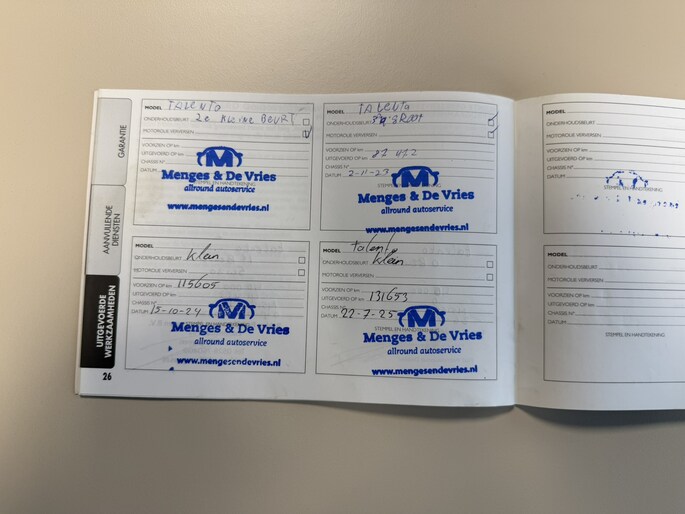 GARANTIE
AANVULLENDE
DIENSTEN
UITGEVOERDE
WERKZAAMHEDEN
26
MODEL TALENTO
ONDERHOUDSBEURT 2e KLEINE BEURT
MOTOROLIE VERVERSEN
VOORZIEN OP km
UITGEVOERD OP km
CHASSIS N°
DATUM
STEMPEL EN HANDTEKENING
Menges & De Vries
allround autoservice
www.mengesendevries.nl
MODEL TALENTO
ONDERHOUDSBEURT GROOT
MOTOROLIE VERVERSEN
VOORZIEN OP km
UITGEVOERD OP km 87 472
CHASSIS N°
DATUM 2-11-23
Menges & De Vries
allround autoservice
www.mengesendevries.nl
MODEL
ONDERHOUDSBEURT klein
MOTOROLIE VERVERSEN
VOORZIEN OP km 115605
UITGEVOERD OP km
CHASSIS N°
DATUM 15-10-24
Menges & De Vries
allround autoservice
www.mengesendevries.nl
MODEL talento
ONDERHOUDSBEURT klein
MOTOROLIE VERVERSEN
VOORZIEN OP km
UITGEVOERD OP km 131653
CHASSIS N°
DATUM 22-7-25
STEMPEL EN HANDTEKENING
Menges & De Vries
allround autoservice
www.mengesendevries.nl
MODEL
ONDERHOUDSBEURT
MOTOROLIE VERVERSEN
VOORZIEN OP km
UITGEVOERD OP km
CHASSIS N°
DATUM
STEMPEL EN HANDTEKENING
MODEL
ONDERHOUDSBEURT
MOTOROLIE VERVERSEN
VOORZIEN OP km
UITGEVOERD OP km
CHASSIS N°
DATUM
STEMPEL EN HANDTEKENING